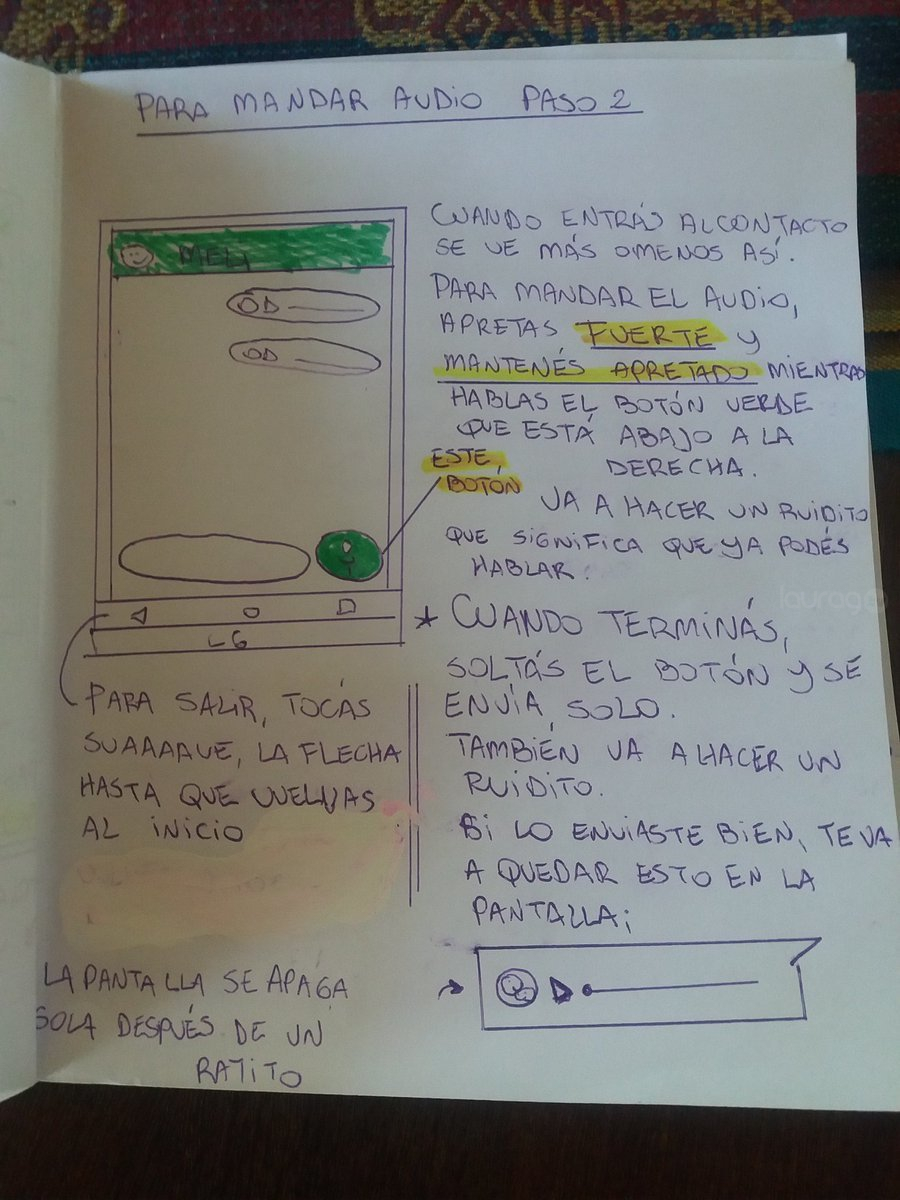 PARA MANDAR AUDIO PASO 2
MELI
LG
CUANDO ENTRÁS AL CONTACTO
SE VE MÁS O MENOS ASÍ.
PARA MANDAR EL AUDIO,
APRETAS FUERTE Y
MANTENÉS APRETADO MIENTRAS
HABLAS EL BOTÓN VERDE
QUE ESTÁ ABAJO A LA
DERECHA.
ESTE
BOTÓN
VA A HACER UN RUIDITO
QUE SIGNIFICA QUE YA PODÉS
HABLAR.
* CUANDO TERMINÁS,
SOLTÁS EL BOTÓN Y SE
ENVÍA, SOLO.
TAMBIÉN VA A HACER UN
RUIDITO.
SI LO ENVIASTE BIEN, TE VA
A QUEDAR ESTO EN LA
PANTALLA;
PARA SALIR, TOCÁS
SUAAAAVE, LA FLECHA
HASTA QUE VUELVAS
AL INICIO
LA PANTALLA SE APAGA
SOLA DESPUÉS DE UN
RATITO